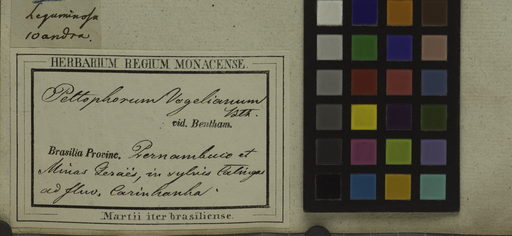 Leguminosa
10andra.
HERBARIUM REGIUM MONACENSE.
Peltophorum Vogelianum
Bth.
vid. Bentham.
Brasilia Provinc. Pernambuco et
Minas Geraës, in sylvis Catingas
ad fluv. Carinhanha.
Martii iter brasiliense.